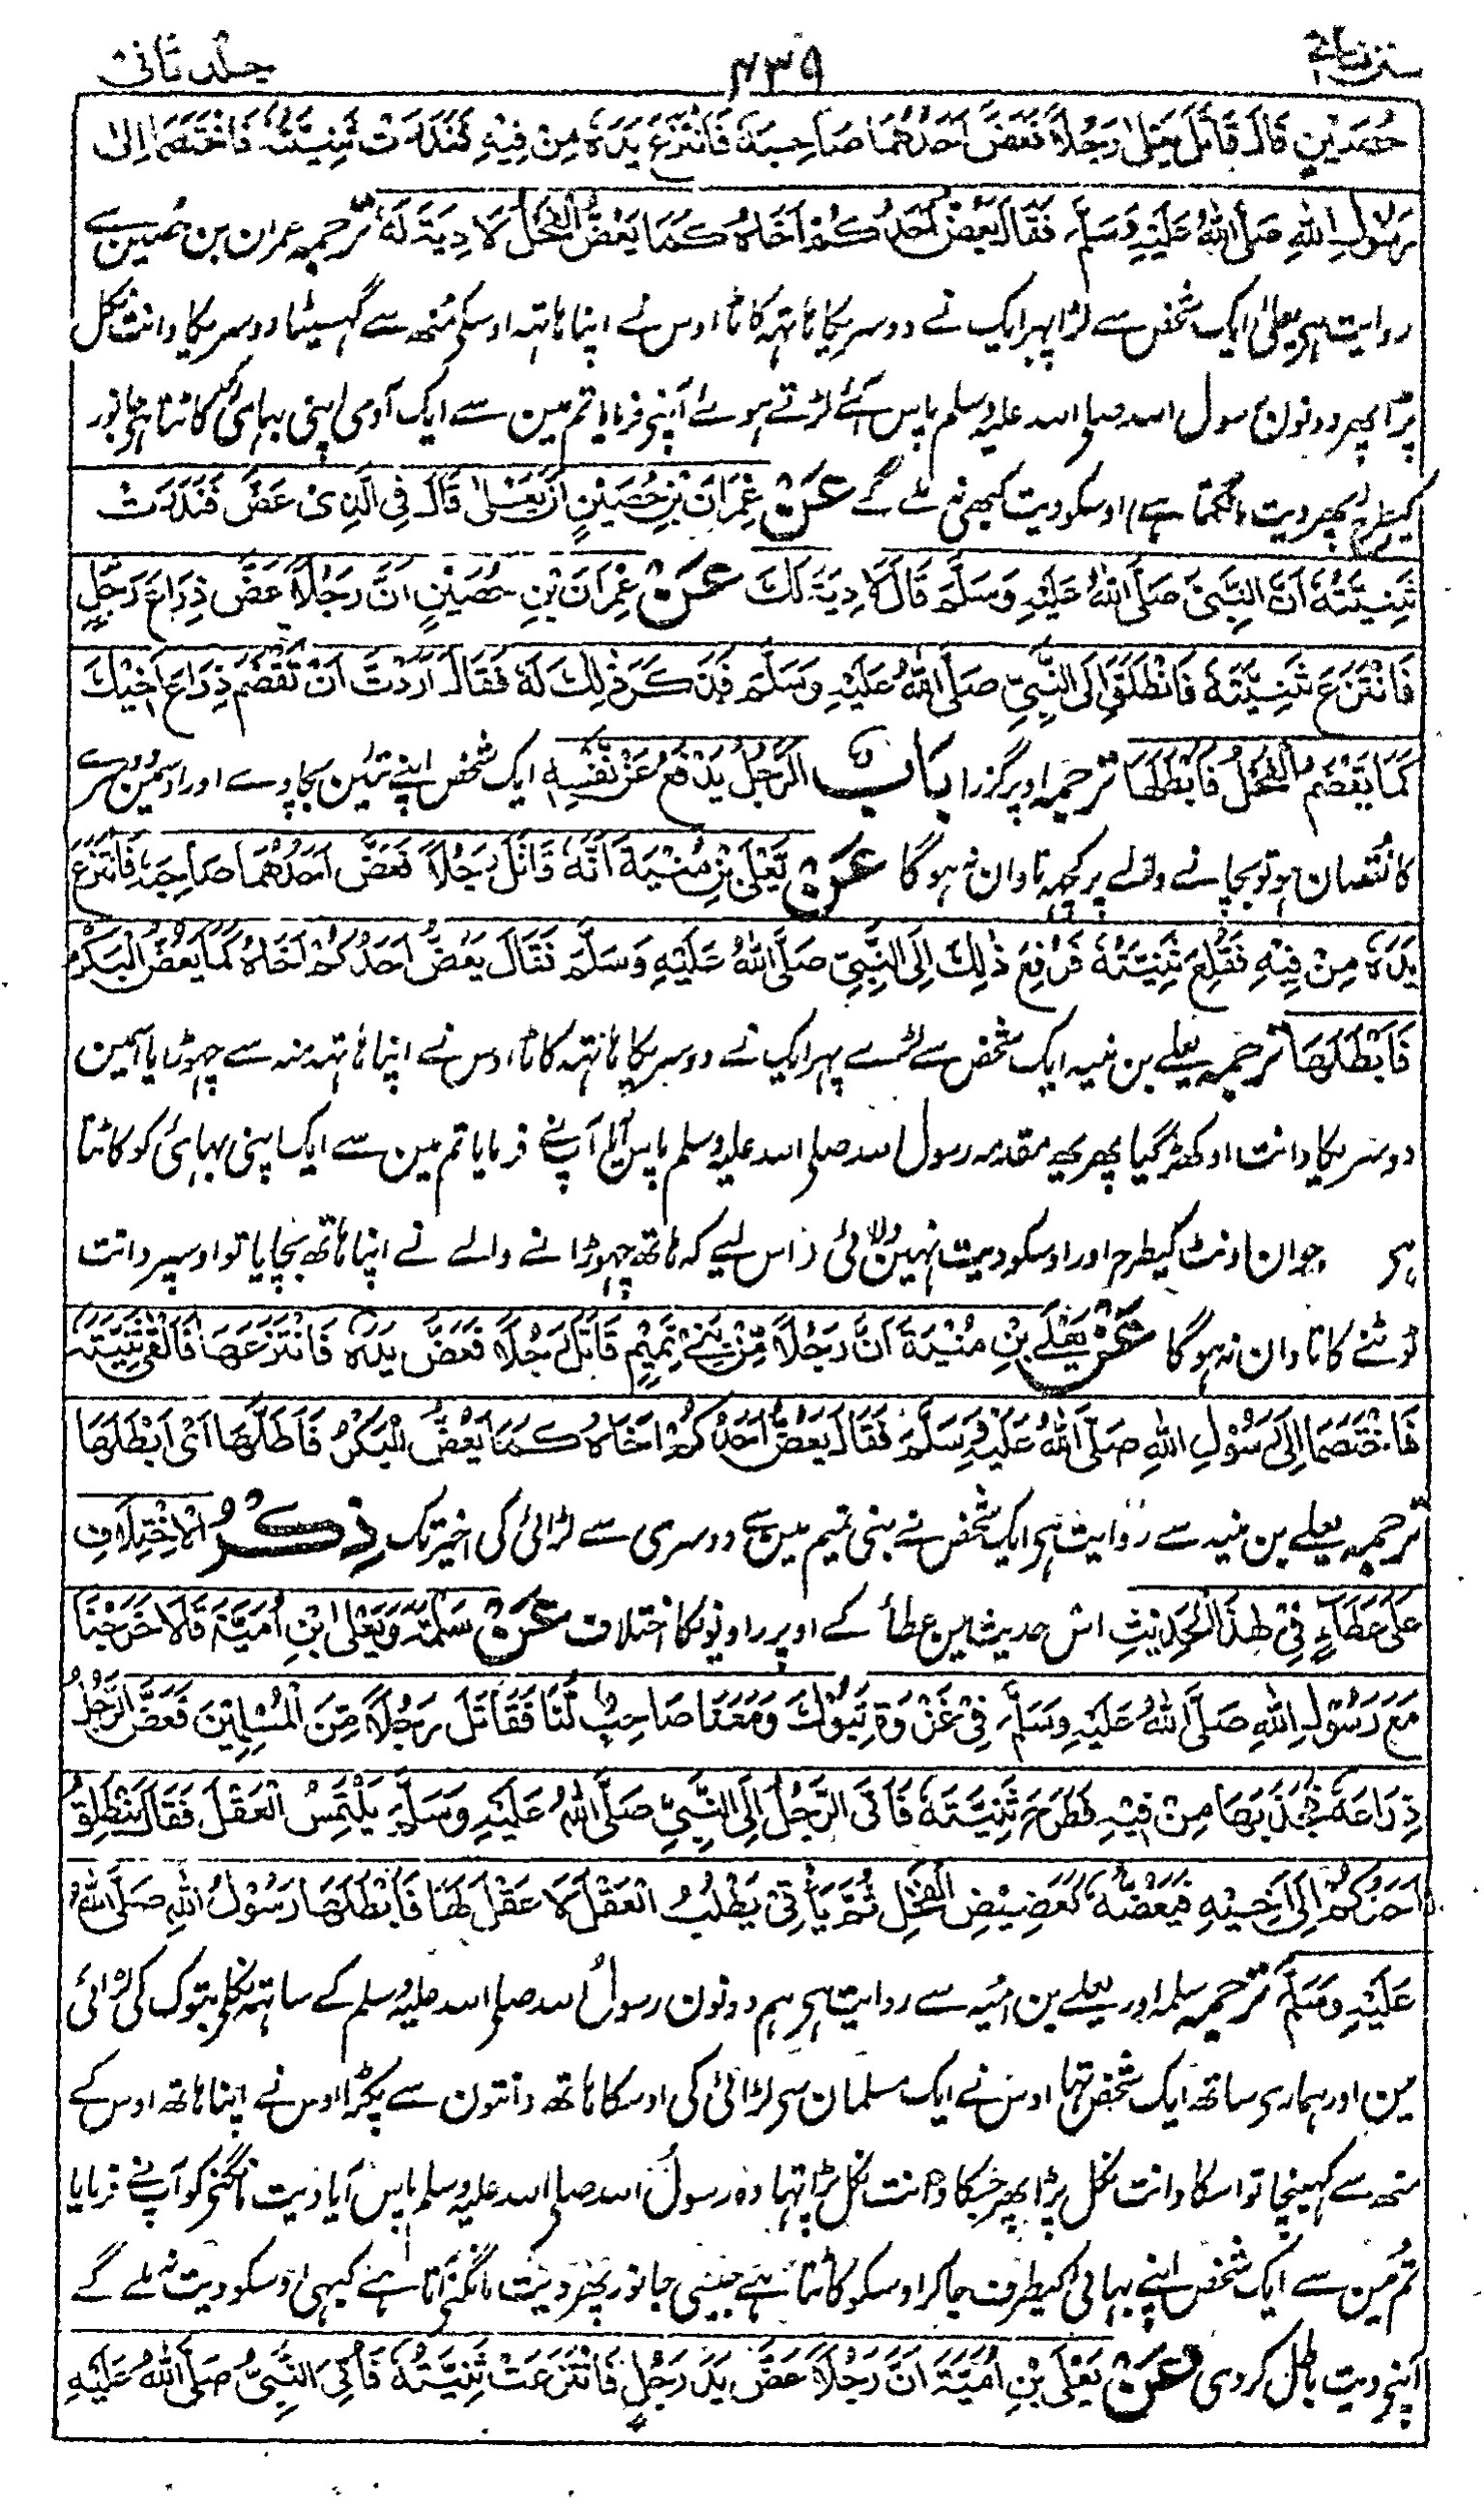 جلد ثانی ۴۳۹ سنن نسائی
حُصَيْنٍ قَالَ قَاتَلَ يَعْلٰى رَجُلًا فَعَضَّ اَحَدُهُمَا صَاحِبَهٗ فَانْتَزَعَ يَدَهٗ مِنْ فِيْهِ فَنَدَرَتْ ثَنِيَّتُهٗ فَاخْتَصَمَا اِلٰى
رَسُوْلِ اللّٰهِ صَلَّى اللّٰهُ عَلَيْهِ وَسَلَّمَ فَقَالَ يَعَضُّ اَحَدُكُمْ اَخَاهُ كَمَا يَعَضُّ الْفَحْلُ لَا دِيَةَ لَهٗ ترجمہ عمران بن حصین سے
روایت ہی یعلیٰ ایک شخص سے لڑا پہر ایک نے دوسریکا ہاتہہ کاٹا اوس نے اپنا ہاتہہ اوسکی منھ سے گہسیٹا دوسریکا دانت نکل
پڑا پھر دونون رسول اللہ صلی اللہ علیہ وسلم پاس آئے لڑتے ہوئے آپنی فرمایا تم مین سے ایک آدمی اپنی بہائی کو کاٹتا ہی جانور
کیطرح پھر دیت مانگتا ہے اوسکو دیت کبھی نہ ملے گے عَنْ عِمْرَانَ بْنِ حُصَيْنٍ اَنَّ يَعْلٰى قَالَ فِى الَّذِىْ عَضَّ فَنَدَرَتْ
ثَنِيَّتُهٗ اَنَّ النَّبِىَّ صَلَّى اللّٰهُ عَلَيْهِ وَسَلَّمَ قَالَ لَا دِيَةَ لَكَ عَنْ عِمْرَانَ بْنِ حُصَيْنٍ اَنَّ رَجُلًا عَضَّ ذِرَاعَ رَجُلٍ
فَانْتَزَعَ ثَنِيَّتَهٗ فَانْطَلَقَا اِلَى النَّبِىِّ صَلَّى اللّٰهُ عَلَيْهِ وَسَلَّمَ فَذَكَرَ ذٰلِكَ لَهٗ فَقَالَ اَرَدْتَ اَنْ تَقْضَمَ ذِرَاعَ اَخِيْكَ
كَمَا يَقْضَمُ الْفَحْلُ فَاَبْطَلَهَا ترجمہ اوپر گزرا بَابُ الرَّجُلُ يَدْفَعُ عَنْ نَفْسِهٖ ایک شخص اپنے تئین بچاوے اور اوسمین دوسرے
کا نقصان ہو تو بچانے والے پر کچہہ تاوان نہ ہوگا عَنْ يَعْلَى بْنِ مُنْيَةَ اَنَّهٗ قَاتَلَ رَجُلًا فَعَضَّ اَحَدُهُمَا صَاحِبَهٗ فَانْتَزَعَ
يَدَهٗ مِنْ فِيْهِ فَقَلَعَ ثَنِيَّتَهٗ فَرُفِعَ ذٰلِكَ اِلَى النَّبِىِّ صَلَّى اللّٰهُ عَلَيْهِ وَسَلَّمَ فَقَالَ يَعَضُّ اَحَدُكُمْ اَخَاهُ كَمَا يَعَضُّ الْبَكْرُ
فَاَبْطَلَهَا ترجمہ یعلے بن منیہ ایک شخص سے لڑے پہر ایک نے دوسریکا ہاتہہ کاٹا اوس نے اپنا ہاتہہ منہ سے چہوڑایا اسمین
دوسریکا دانت اوکھڑ گیا پھر یہہ مقدمہ رسول اللہ صلی اللہ علیہ وسلم پاس آیا آپ نے فرمایا تم مین سے ایک اپنی بہائی کو کاٹتا
ہی جوان اونٹ کیطرح اور اوسکو دیت نہین دلائی (اس لیے کہ ہاتھ چہوڑانے والے نے اپنا ہاتھ بچایا تو اوسپر دانت
ٹوٹنے کا تاوان نہ ہوگا عَنْ يَعْلَى بْنِ مُنْيَةَ اَنَّ رَجُلًا مِّنْ بَنِىْ تَمِيْمٍ قَاتَلَ رَجُلًا فَعَضَّ يَدَهٗ فَانْتَزَعَهَا فَاَلْقٰى ثَنِيَّتَهٗ
فَاخْتَصَمَا اِلَى رَسُوْلِ اللّٰهِ صَلَّى اللّٰهُ عَلَيْهِ وَسَلَّمَ فَقَالَ يَعَضُّ اَحَدُكُمْ اَخَاهُ كَمَا يَعَضُّ الْبَكْرُ فَاَطَلَّهَا اَىْ اَبْطَلَهَا
ترجمہ یعلے بن منیہ سے روایت ہی ایک شخص نے بنی تمیم مین سے دوسری سے لڑائی کی اخیر تک ذِكْرُ الْاِخْتِلَافِ
عَلٰى عَطَاءٍ فِىْ هٰذَا الْحَدِيْثِ اس حدیث مین عطا کے اوپر راویونکا اختلاف عَنْ سَلَمَةَ وَيَعْلَى ابْنِ اُمَيَّةَ قَالَا خَرَجْنَا
مَعَ رَسُوْلِ اللّٰهِ صَلَّى اللّٰهُ عَلَيْهِ وَسَلَّمَ فِىْ غَزْوَةِ تَبُوْكَ وَمَعَنَا صَاحِبٌ لَّنَا فَقَاتَلَ رَجُلًا مِّنَ الْمُسْلِمِيْنَ فَعَضَّ الرَّجُلُ
ذِرَاعَهٗ فَجَذَبَهَا مِنْ فِيْهِ فَطَرَحَ ثَنِيَّتَهٗ فَاَتَى الرَّجُلُ اِلَى النَّبِىِّ صَلَّى اللّٰهُ عَلَيْهِ وَسَلَّمَ يَلْتَمِسُ الْعَقْلَ فَقَالَ يَنْطَلِقُ
اَحَدُكُمْ اِلَى اَخِيْهِ فَيَعَضُّهٗ كَعَضِيْضِ الْفَحْلِ ثُمَّ يَأْتِىْ يَطْلُبُ الْعَقْلَ لَا عَقْلَ لَهَا فَاَبْطَلَهَا رَسُوْلُ اللّٰهِ صَلَّى اللّٰهُ
عَلَيْهِ وَسَلَّمَ ترجمہ سلمہ اور یعلے بن امیہ سے روایت ہی ہم دونون رسول اللہ صلی اللہ علیہ وسلم کے ساتہہ نکلی تبوک کی لڑائی
مین اور ہماری ساتھ ایک شخص تہا اوس نے ایک مسلمان سی لڑائی کی اوسکا ہاتھ دانتون سے پکڑا اوس نے اپنا ہاتھ اوس کے
منھ سے کہینچا تو اسکا دانت نکل پڑا پھر جسکا دانت نکل پڑا تہا وہ رسول اللہ صلی اللہ علیہ وسلم پاس آیا دیت مانگنی کو آپ نے فرمایا
تم مین سے ایک شخص اپنے بہائی کیطرف جاکر اوسکو کاٹتا ہے جیسی جانور پھر دیت مانگنی آتا ہے کبہی اوسکو دیت نہ ملے گے
اپنی دیت باطل کر دی عَنْ يَعْلَى بْنِ اُمَيَّةَ اَنَّ رَجُلًا عَضَّ يَدَ رَجُلٍ فَانْتُزِعَتْ ثَنِيَّتُهٗ فَاَتَى النَّبِىَّ صَلَّى اللّٰهُ عَلَيْهِ